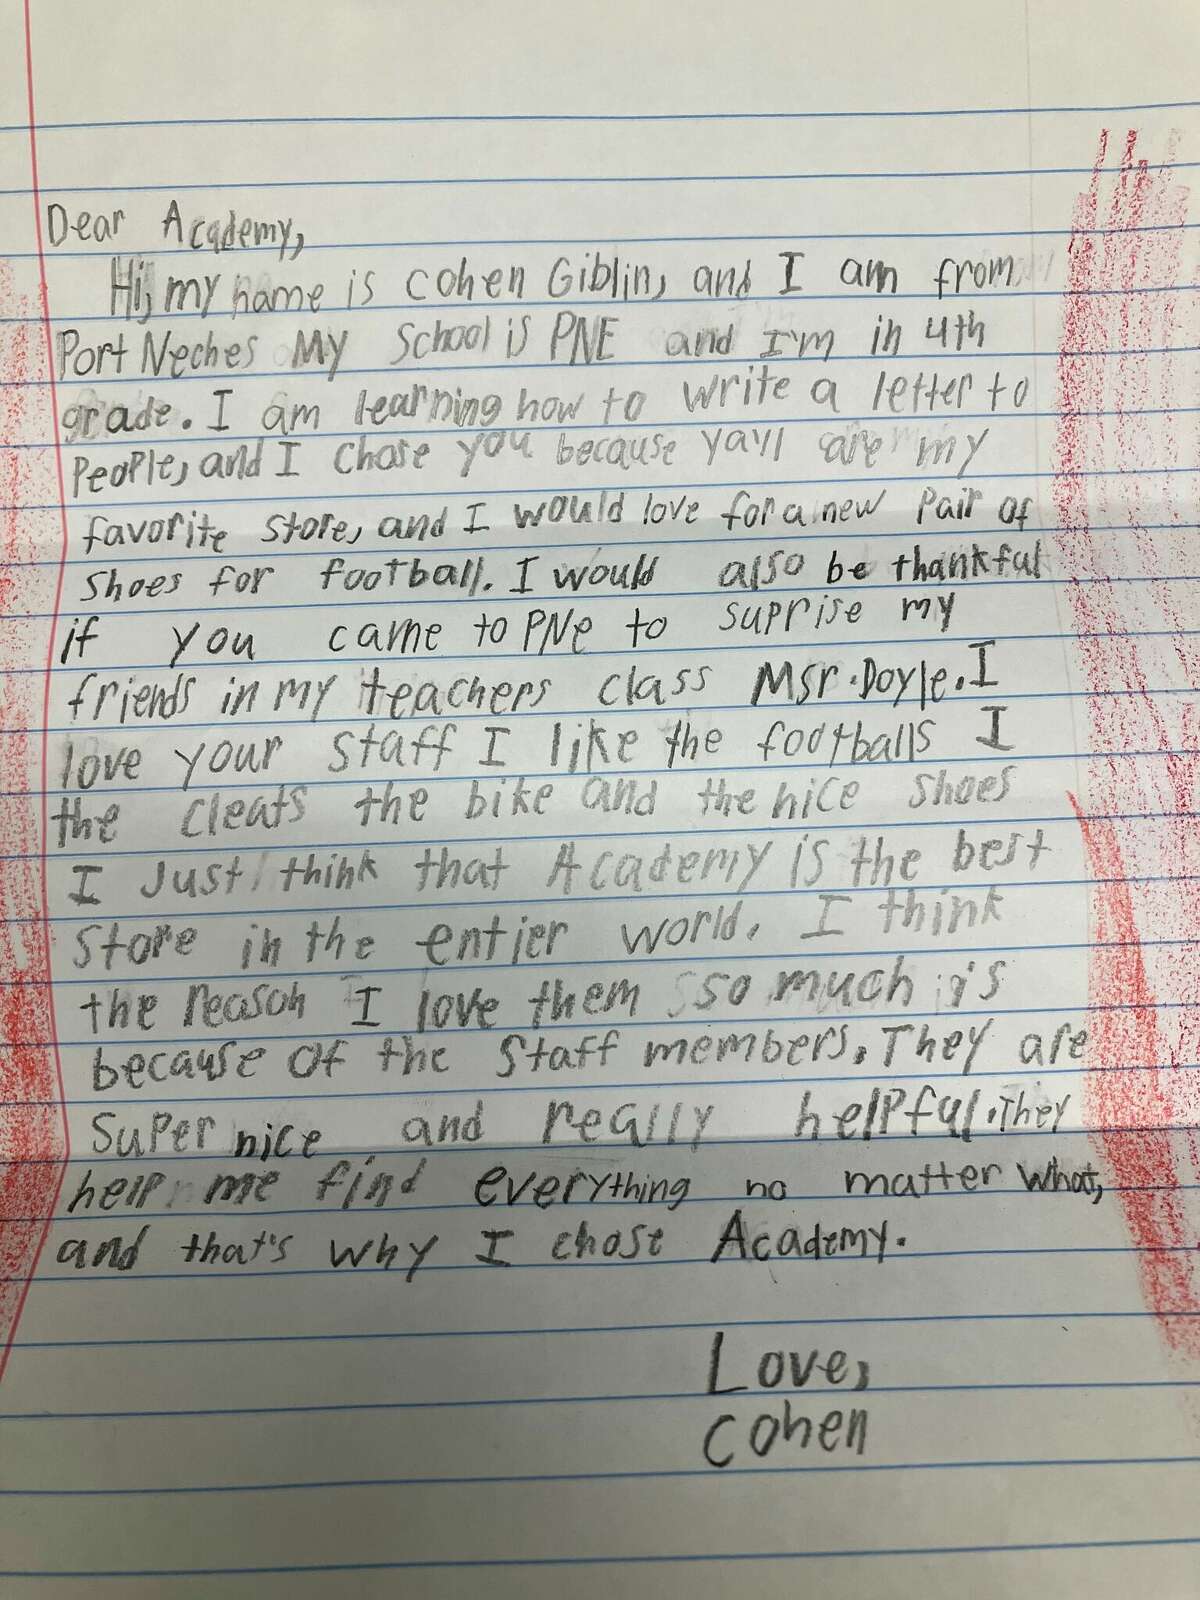 Dear Academy,
Hi, my name is Cohen Giblin, and I am from
Port Neches My School is PNE and I'm in 4th
grade. I am learning how to write a letter to
People, and I chose you because ya'll are my
favorite store, and I would love for a new pair of
shoes for football. I would also be thankful
if you came to PNe to suprise my
friends in my teachers class Msr. Doyle. I
love your staff I like the footballs I
the cleats the bike and the nice shoes
I Just think that Academy is the best
store in the entier world. I think
the reason I love them so much is
because of the staff members. They are
super nice and really helpful. They
help me find everything no matter what,
and that's why I chose Academy.
Love,
Cohen